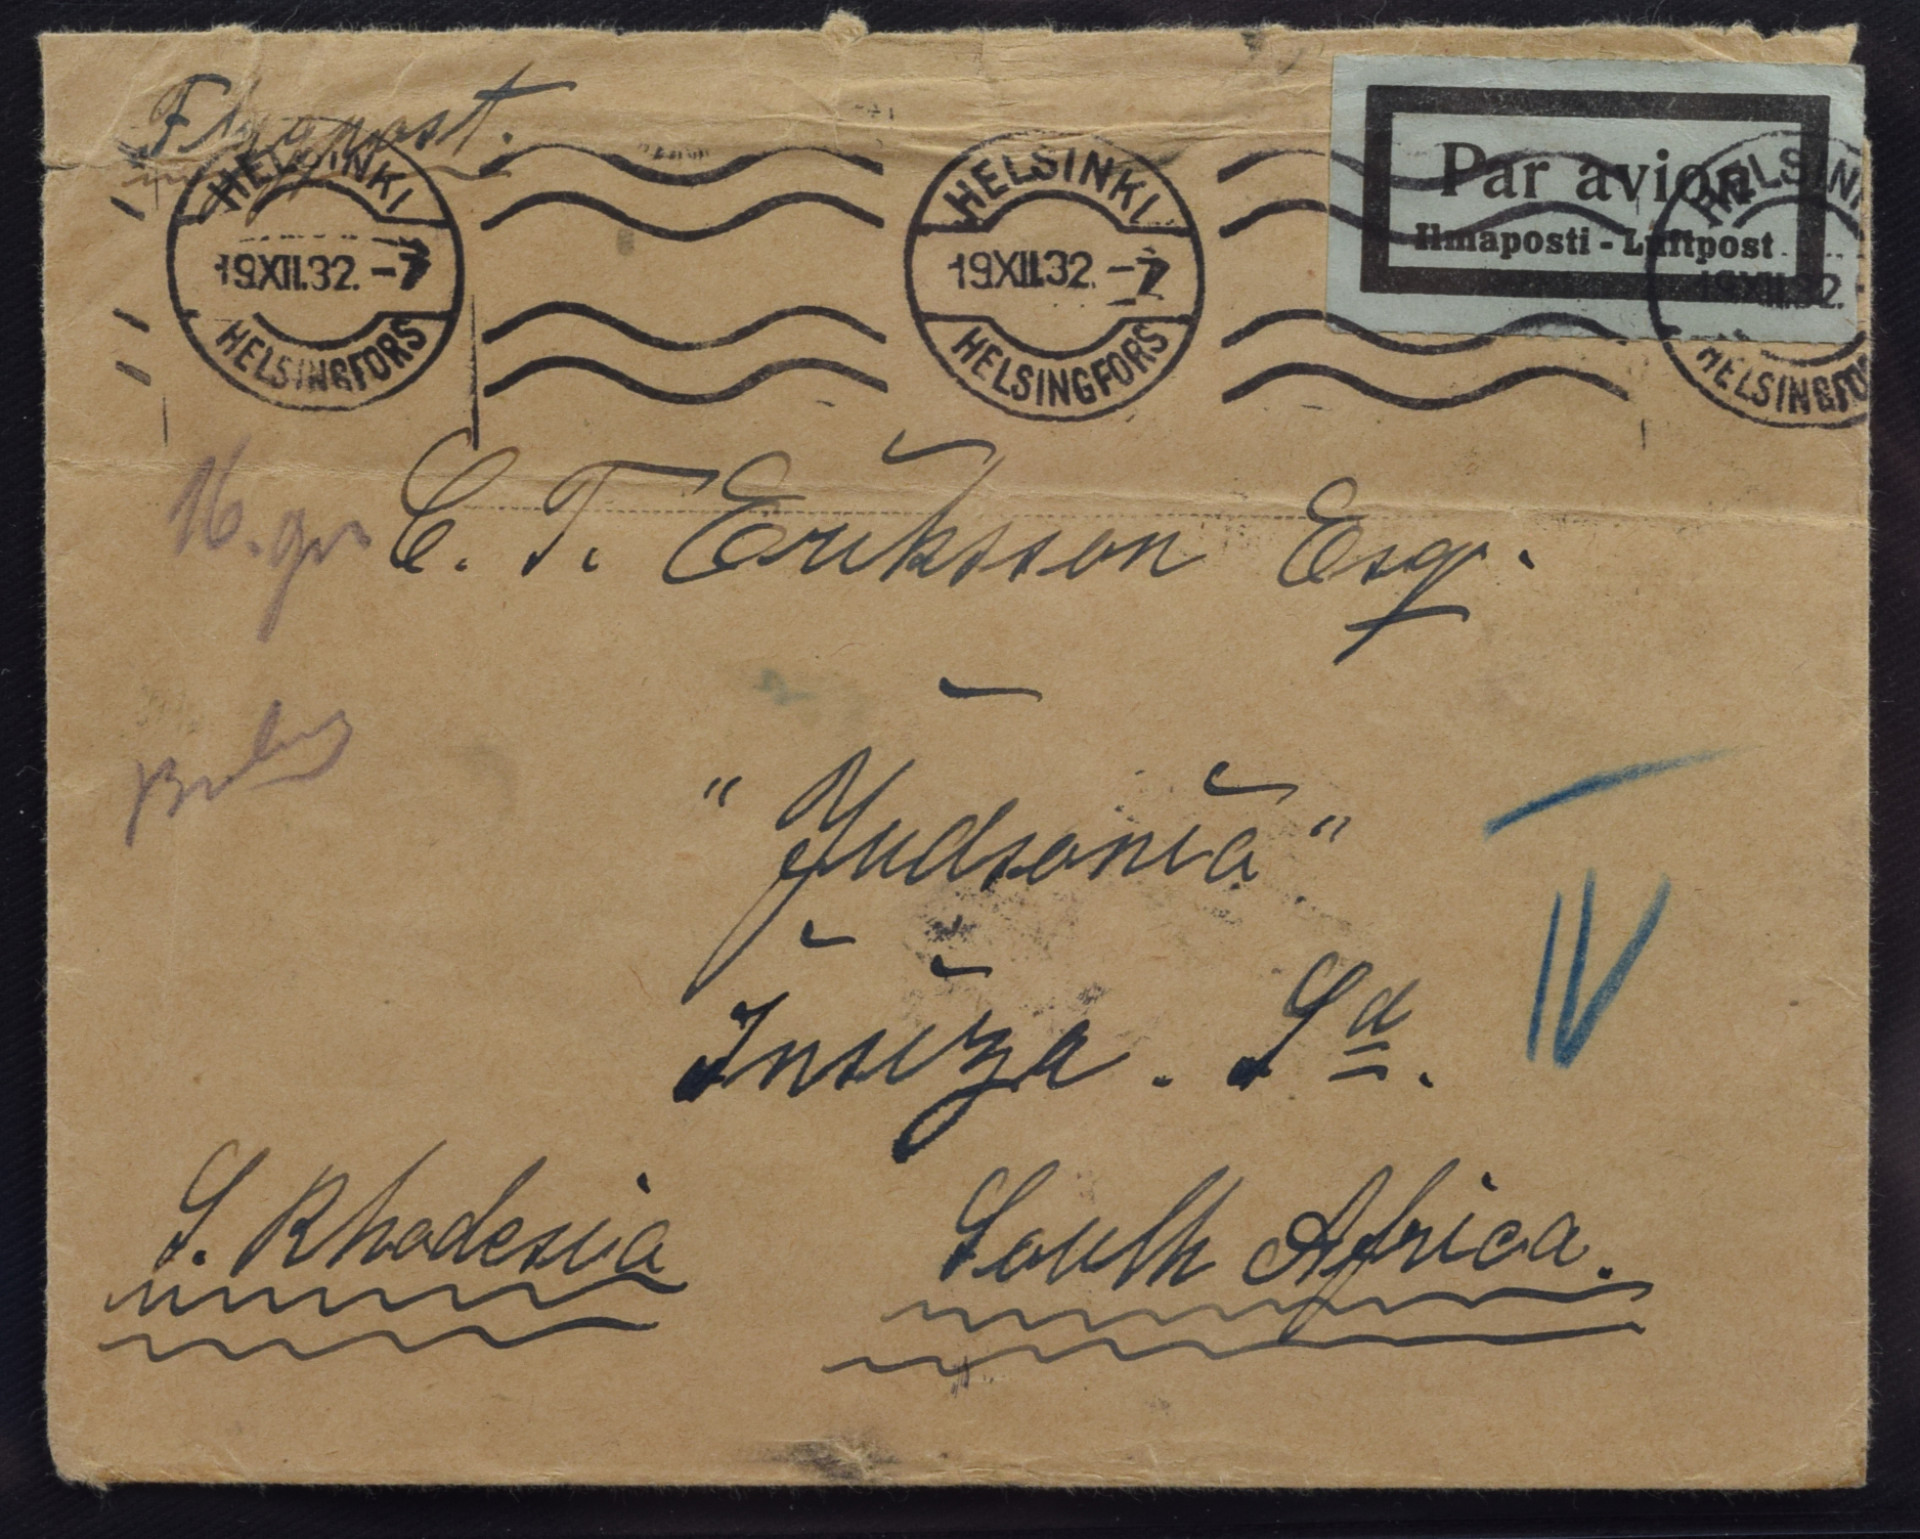 Flygpost.
HELSINKI
19.XII.32. -7
HELSINGFORS
HELSINKI
19.XII.32. -7
HELSINGFORS
Par avion
Ilmaposti - Luftpost
HELSINKI
19.XII.32.
HELSINGFORS
16. gr
C. T. Eriksson Esq.
"Judsonia"
IV
Insiza. Sd.
S. Rhodesia South Africa.